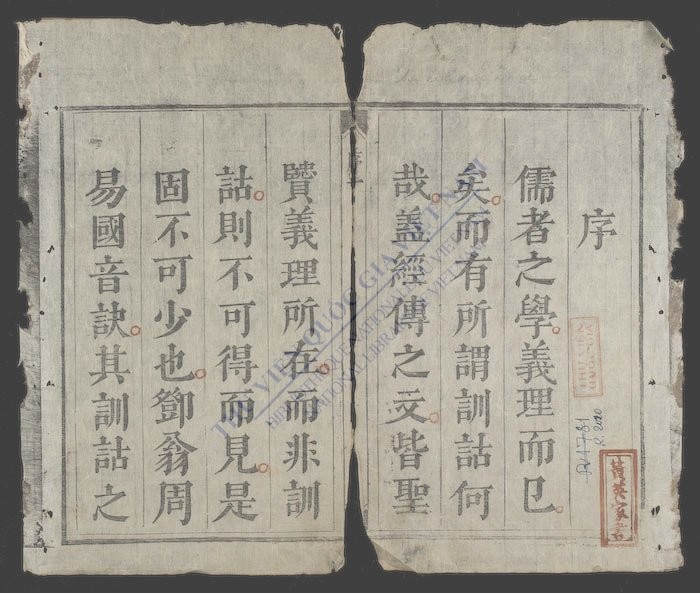 序
儒者之學義理而已
矣而有所謂訓詁何
哉盖經傳之文皆聖
贒義理所在而非訓
詁則不可得而見是
固不可少也鄧翁周
易國音訣其訓詁之
THƯ VIỆN QUỐC GIA VIỆT NAM
BIBLIOTHÈQUE NATIONALE DU VIETNAM
NATIONAL LIBRARY OF VIETNAM
R.2020